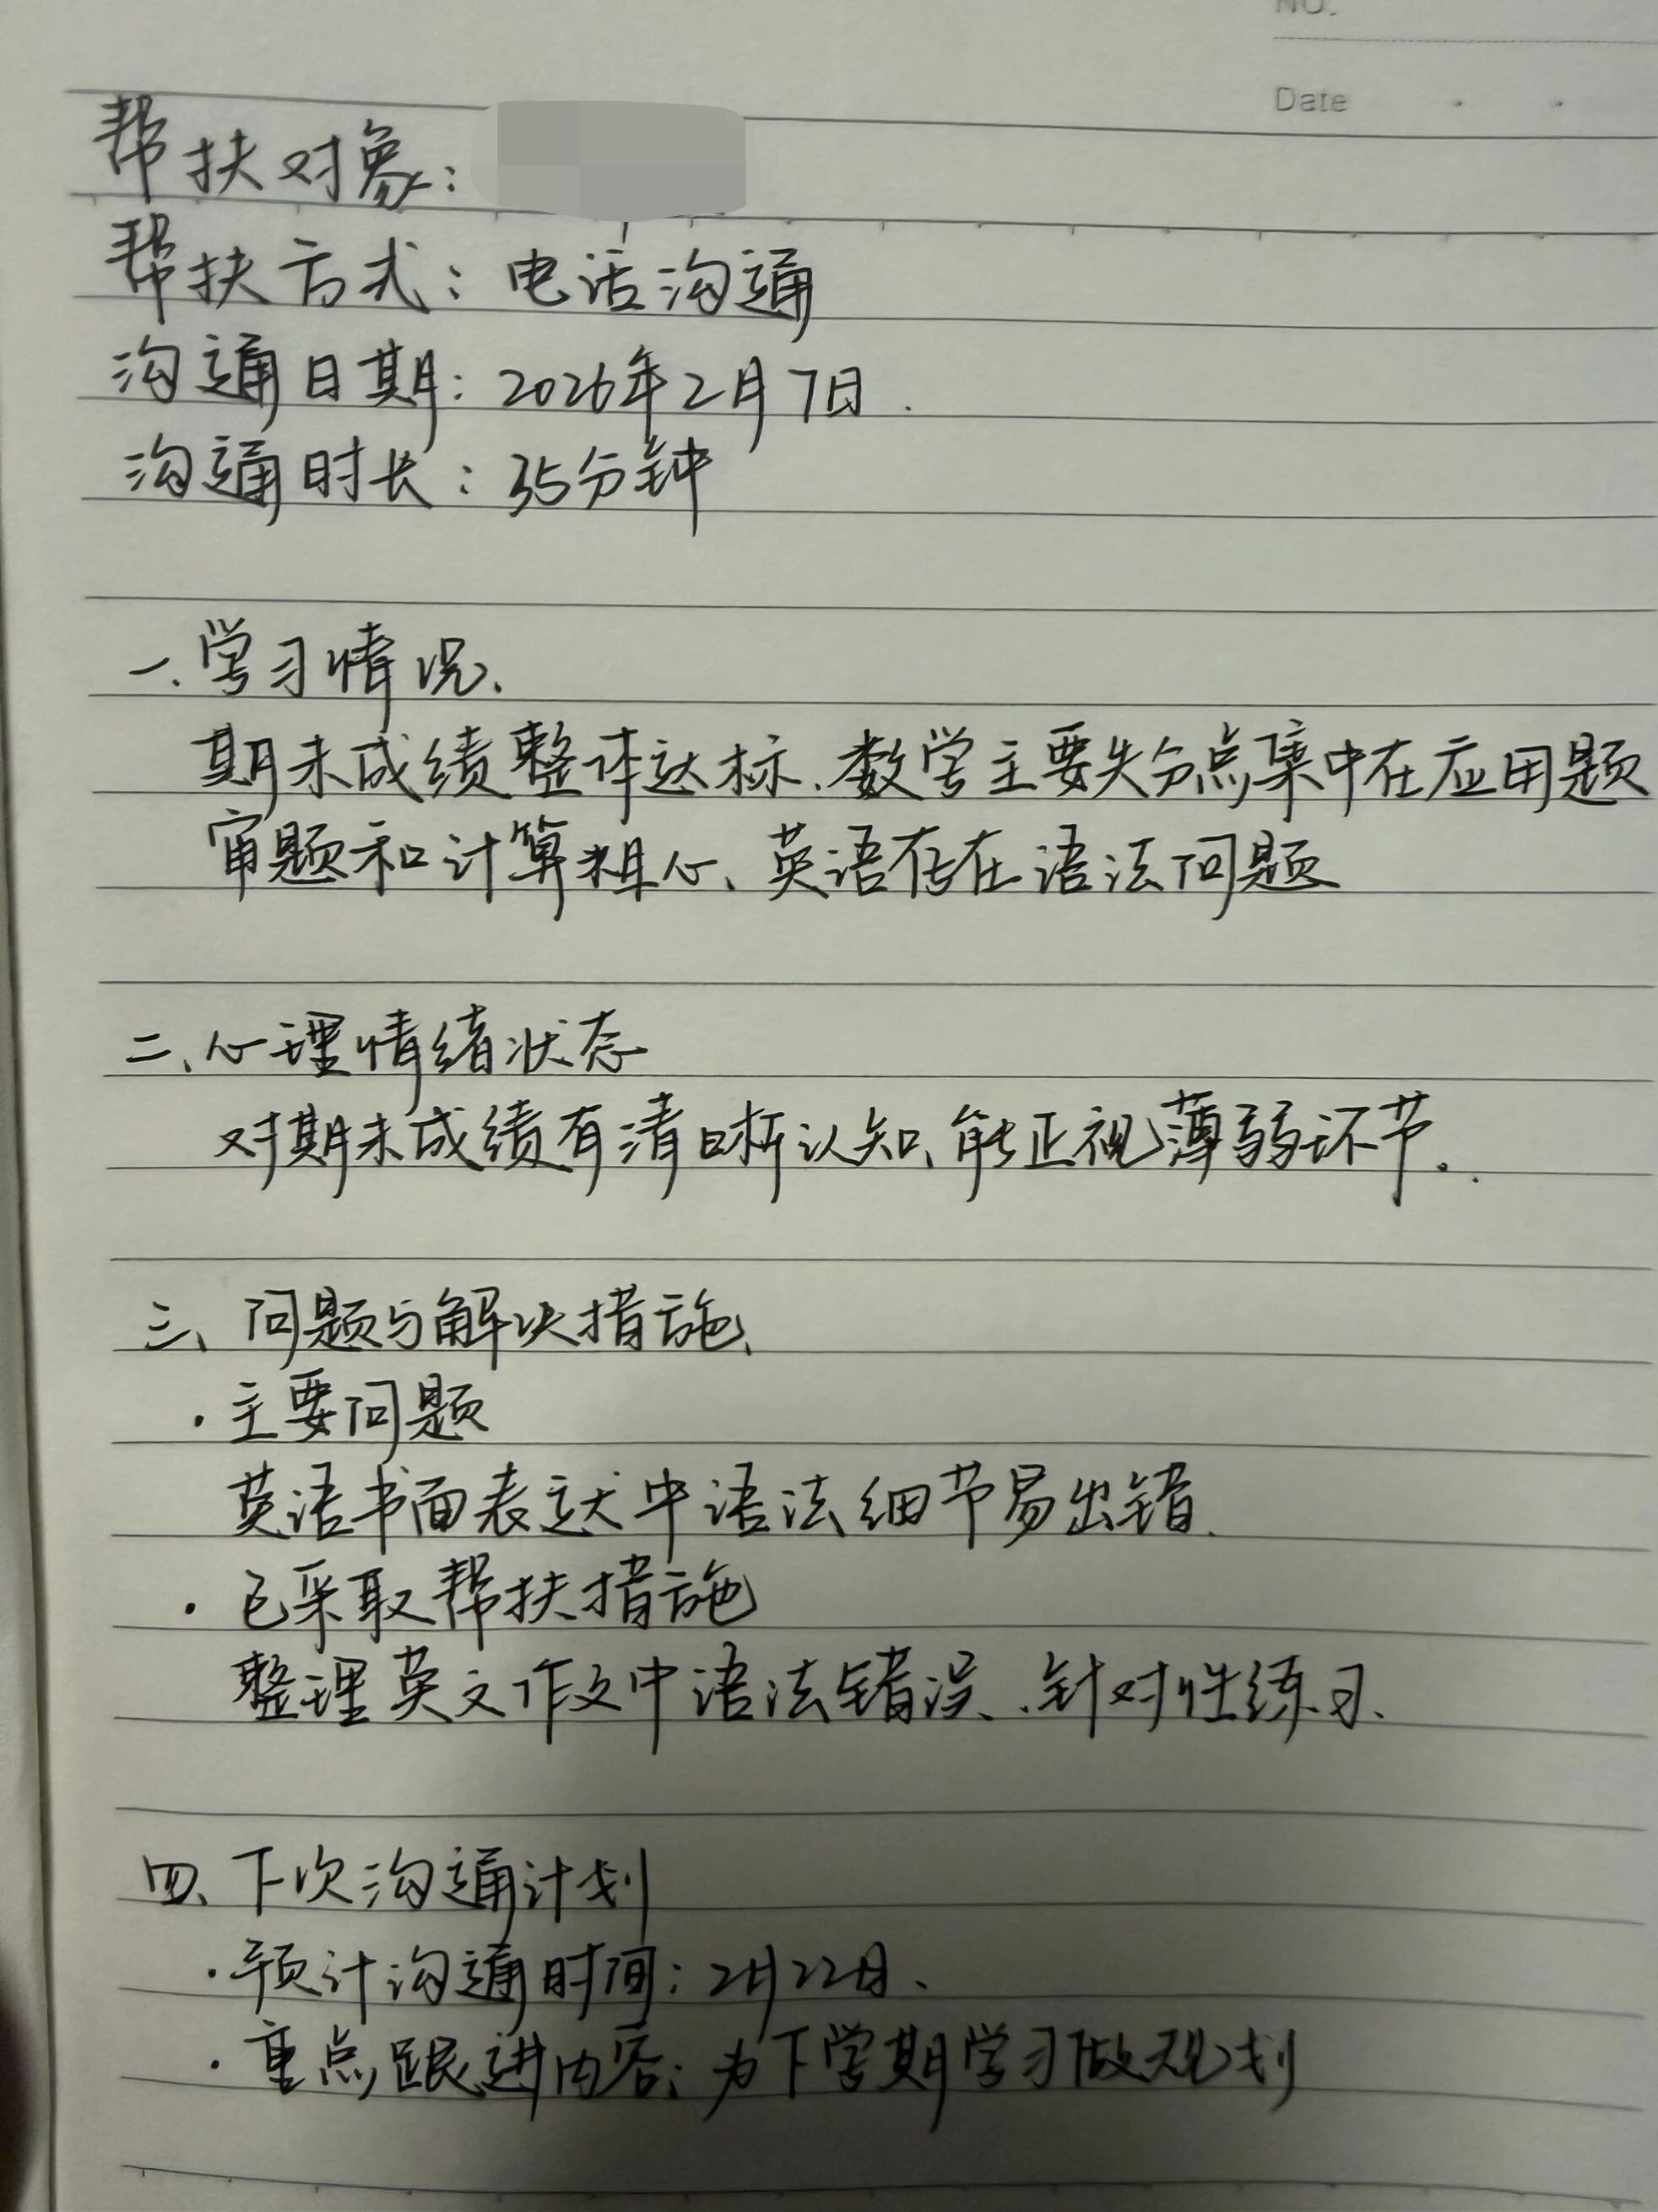 NO.
Date
帮扶对象:
帮扶方式: 电话沟通
沟通日期: 2026年2月7日.
沟通时长: 35分钟
一.学习情况、
期末成绩整体达标、数学主要失分点集中在应用题
审题和计算粗心、英语存在语法问题
二、心理情绪状态
对期末成绩有清晰认知、能正视薄弱环节.
三、问题与解决措施、
·主要问题
英语书面表达中语法细节易出错.
·已采取帮扶措施
整理英文作文中语法错误、针对性练习.
四、下次沟通计划
·预计沟通时间: 2月22日、
·重点跟进内容: 为下学期学习做规划